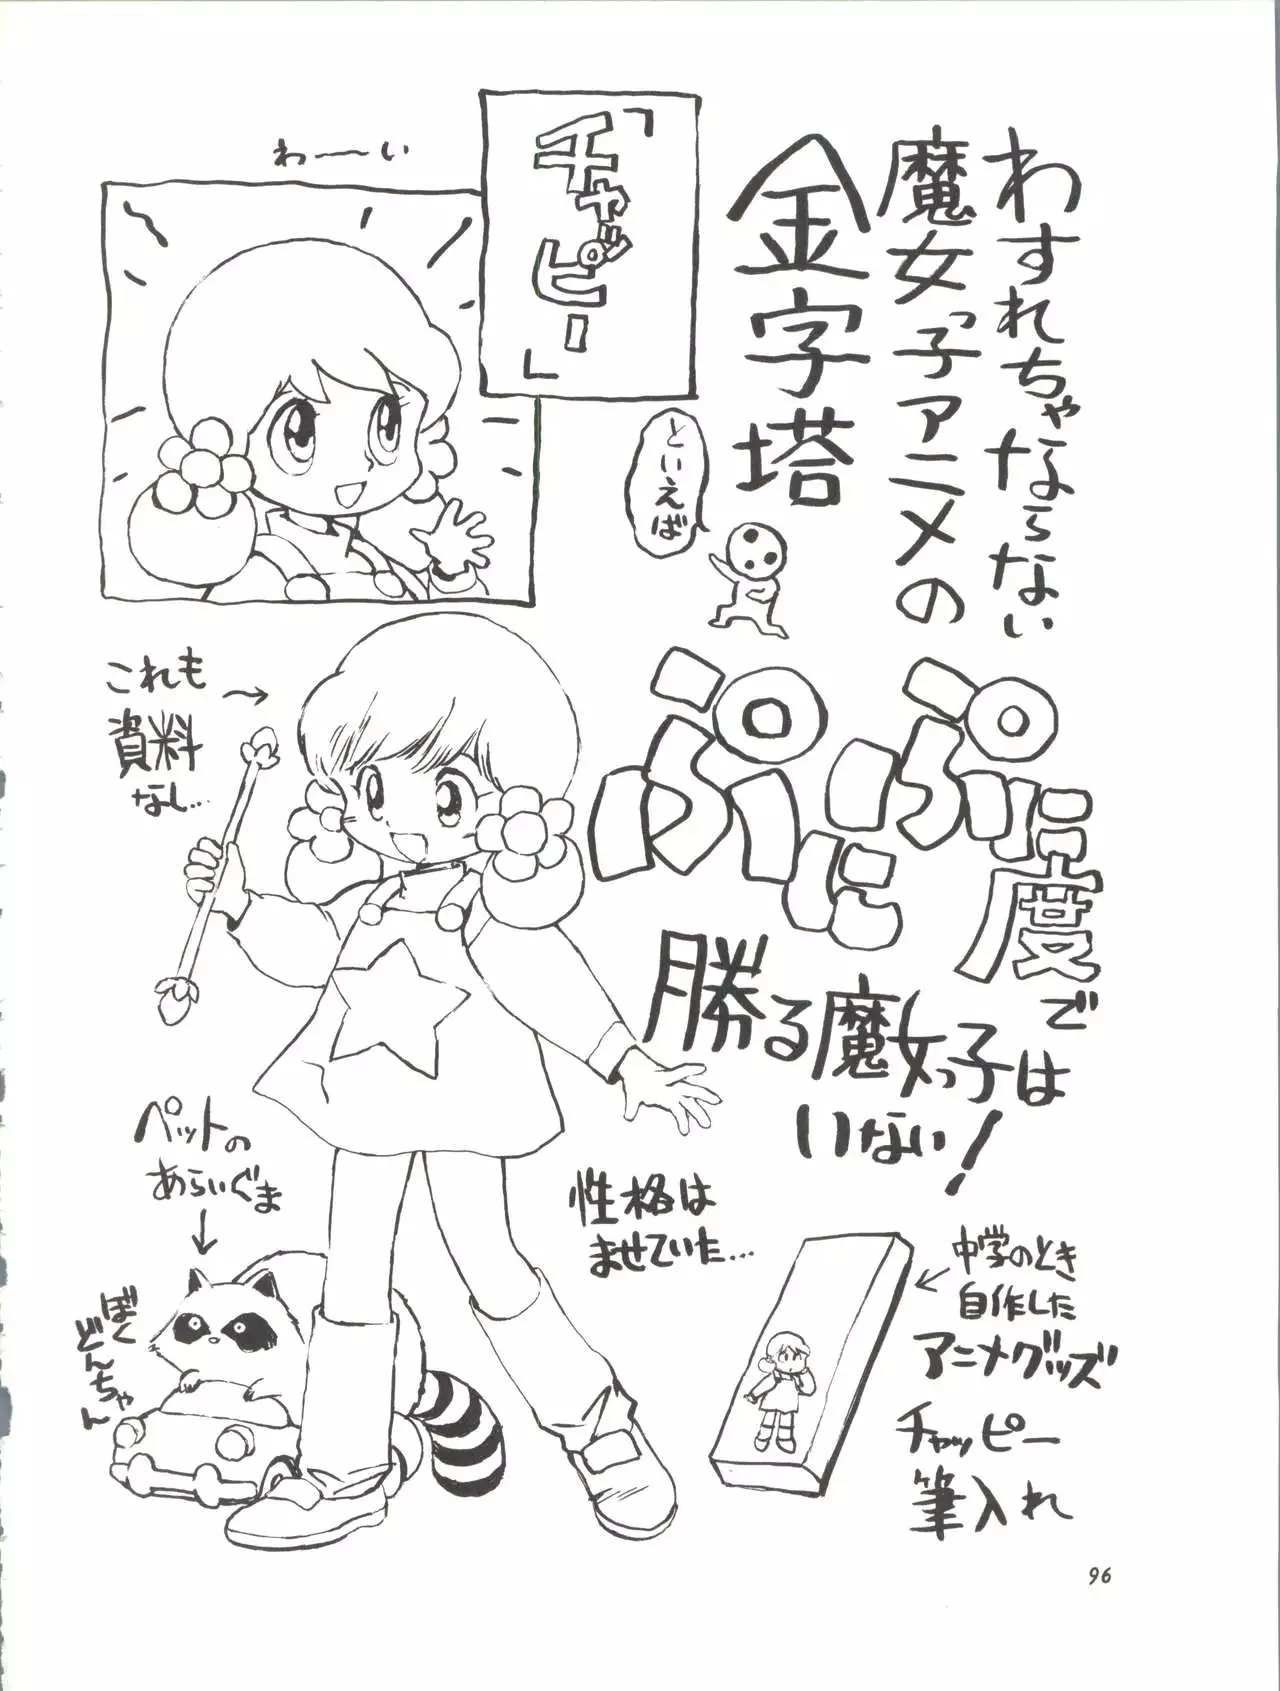 わすれちゃならない
魔女っ子アニメの
金字塔
といえば
「チャッピー」
わーい
ぷにぷに度では
勝る魔女っ子は
いない!
これも
資料
なし…
ペットの
あらいぐま
ぼく
どんちゃん
性格は
ませていた…
中学のとき
自作した
アニメグッズ
チャッピー
筆入れ
96